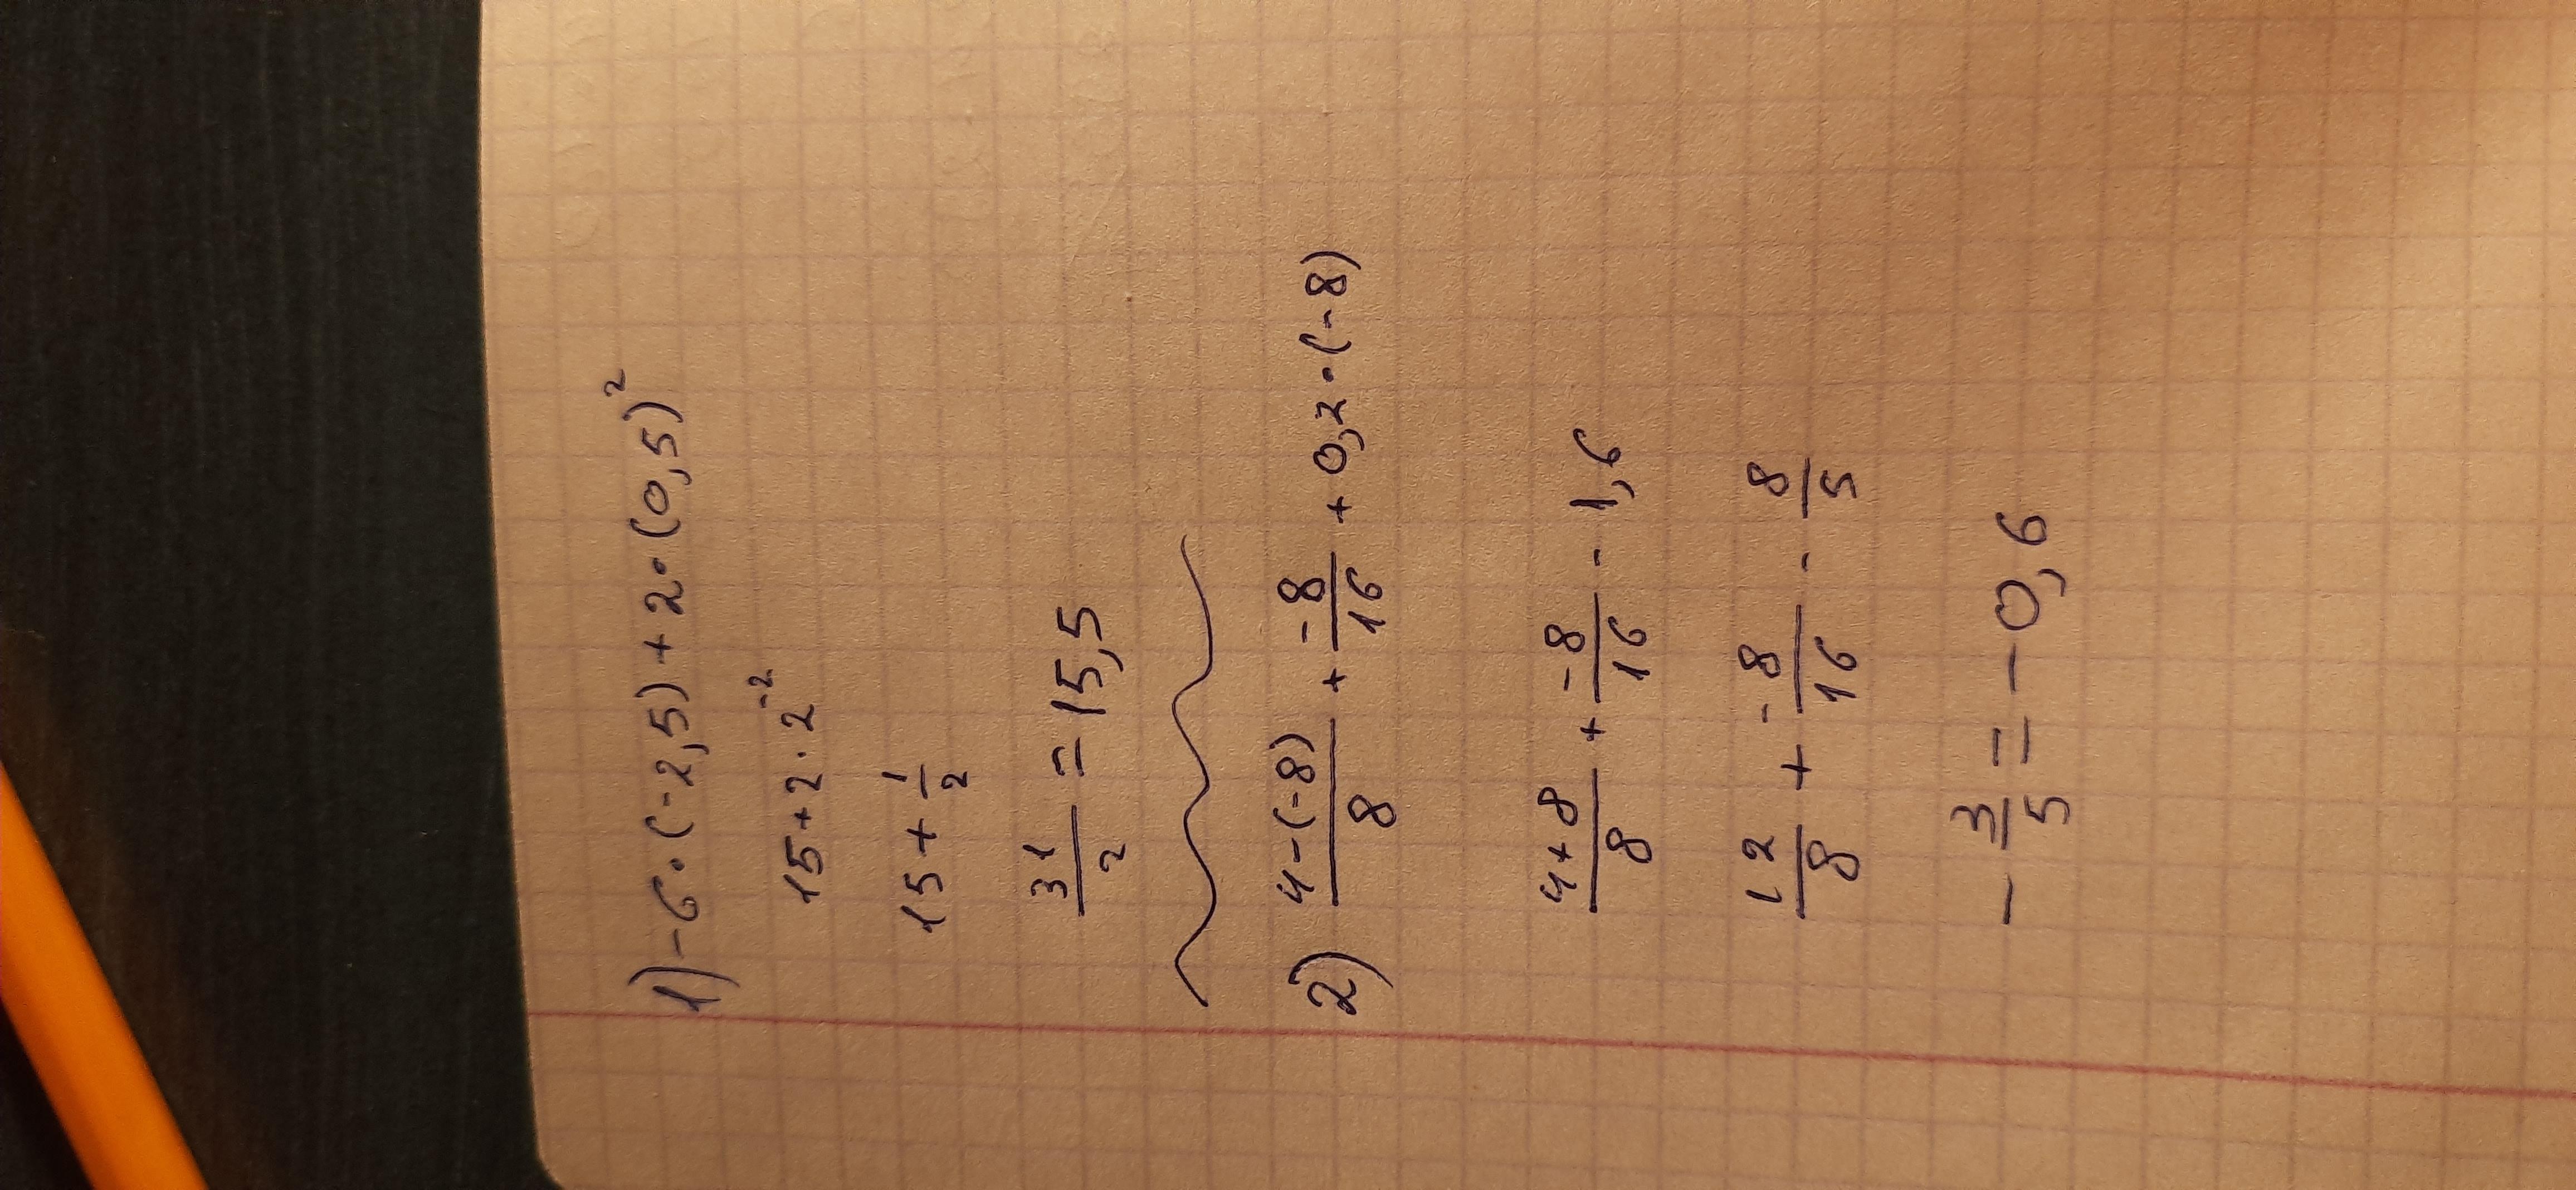 1) -6·(-2,5)+2·(0,5)²
15+2·2⁻²
15+1/2
31/2=15,5
2) (4-(-8))/8 + (-8)/16 + 0,2·(-8)
(4+8)/8 + (-8)/16 - 1,6
12/8 + (-8)/16 - 8/5
-3/5=-0,6